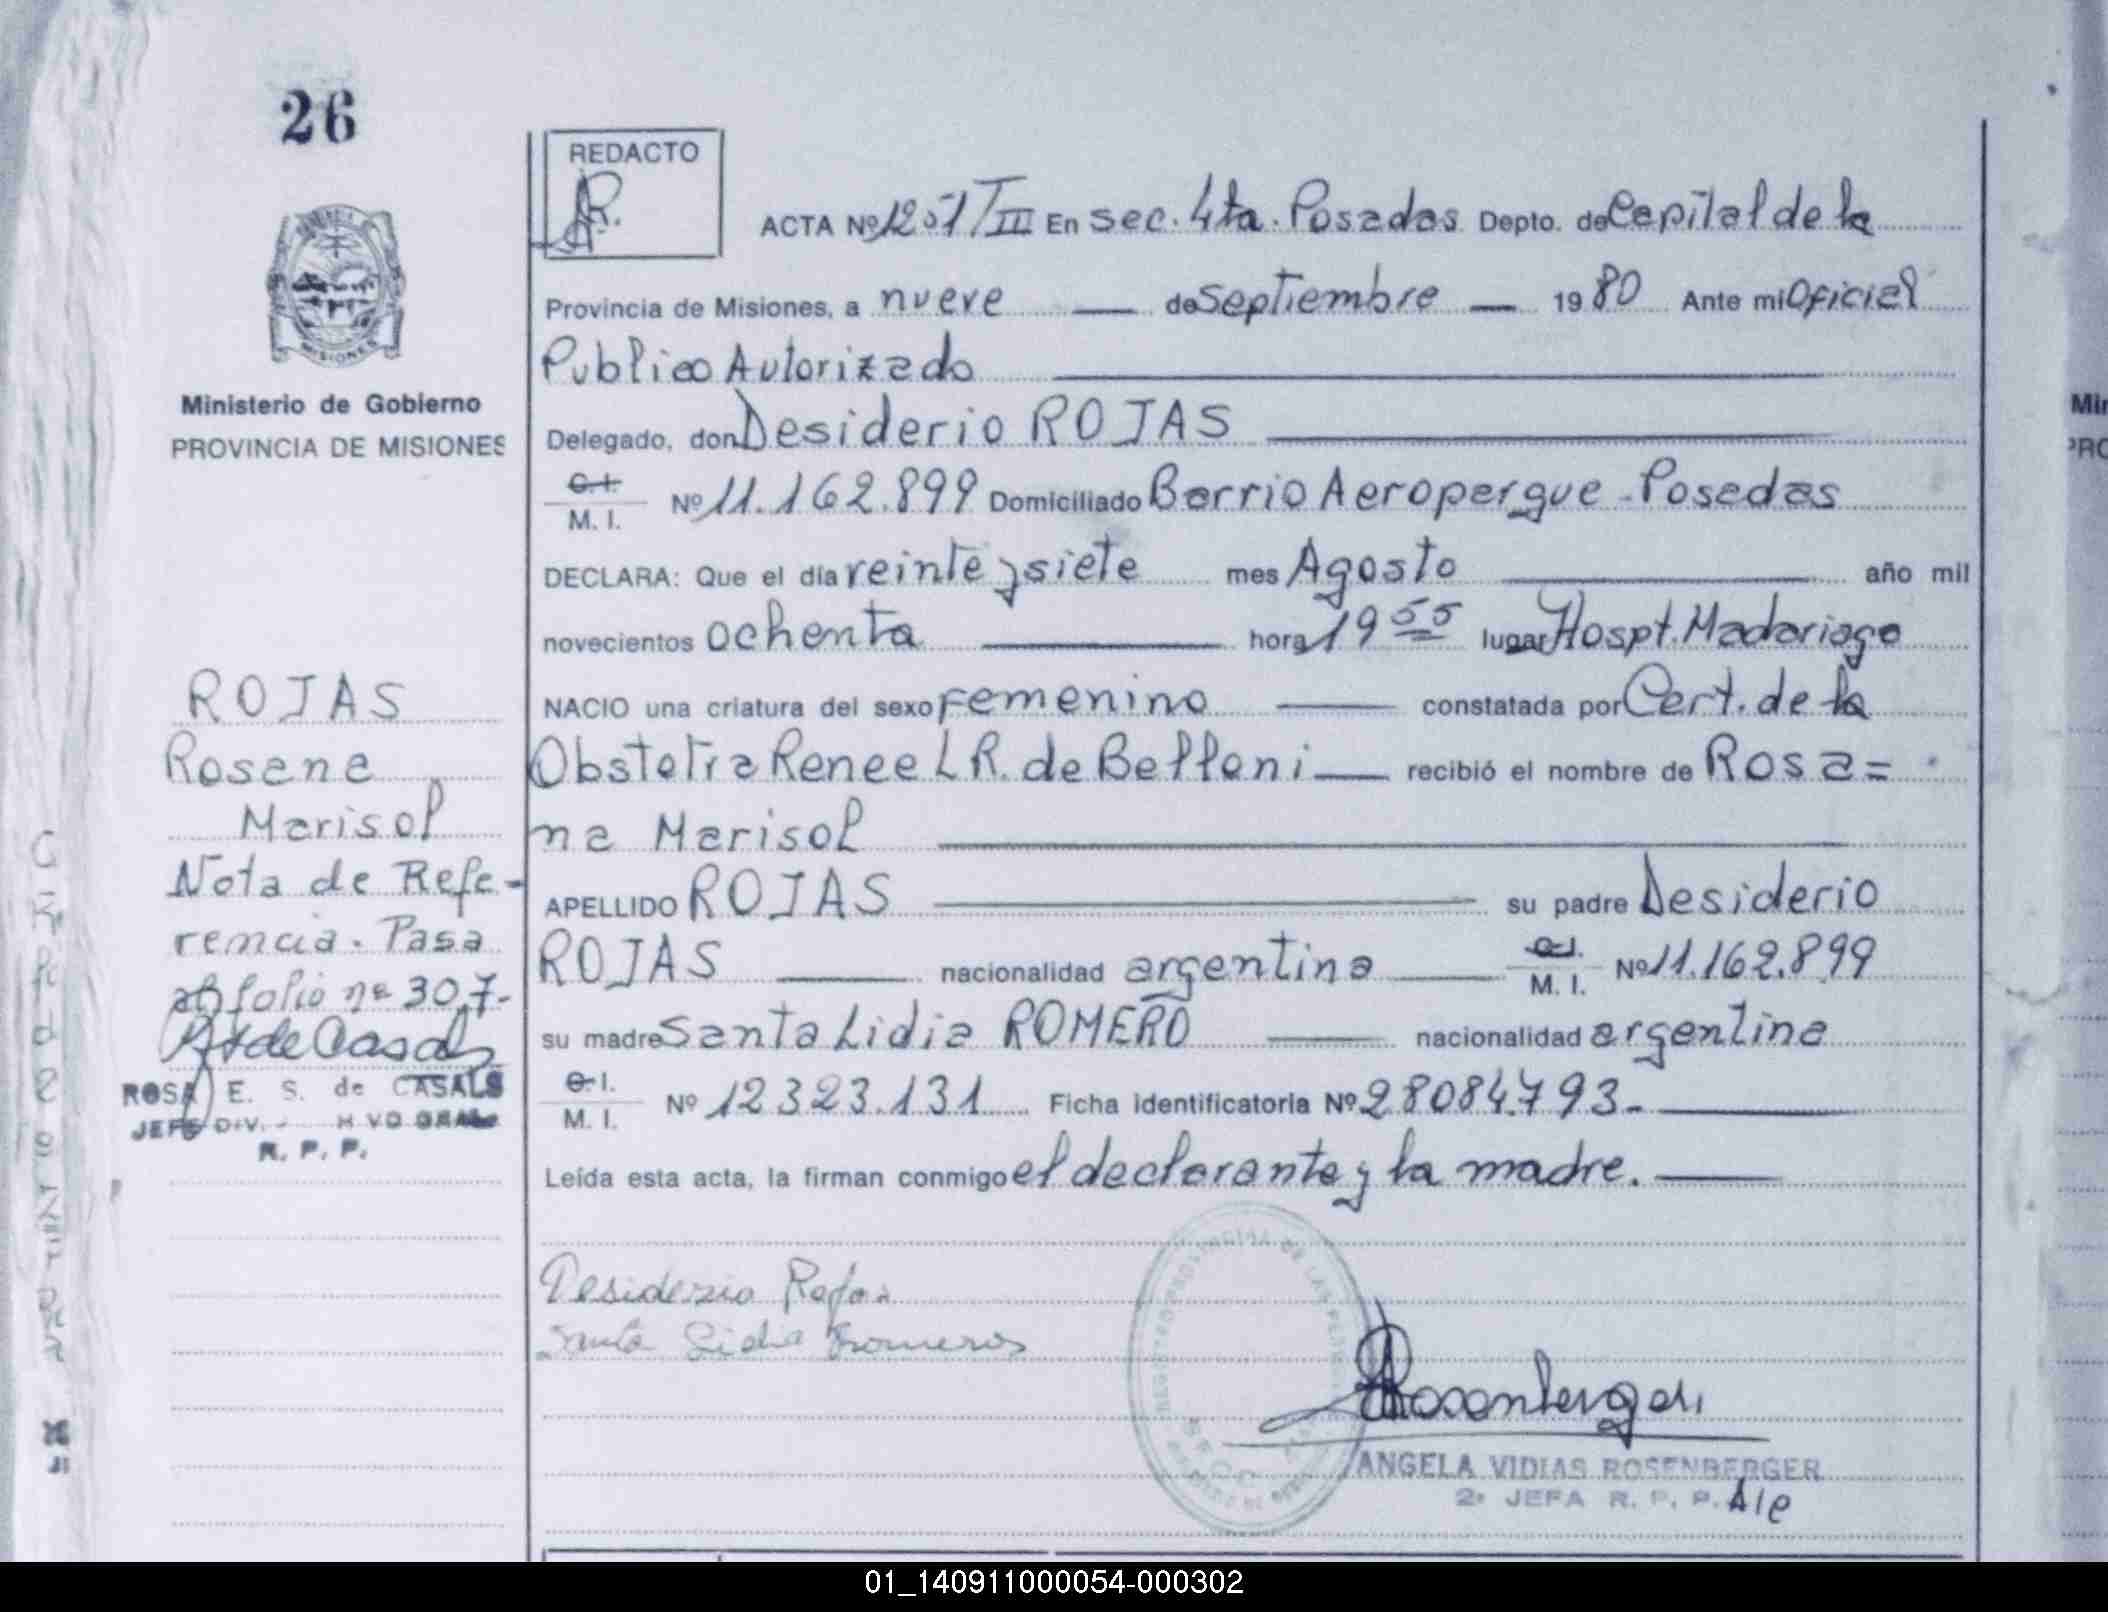 26
REDACTO
ACTA Nº 1251/III En sec. 4ta. Posadas Depto. de Capital de la
Provincia de Misiones, a nueve — de septiembre — 1980 Ante mi Oficial
Publico Autorizado
Delegado, don Desiderio ROJAS
C. I.
M. I. Nº 11.162.899 Domiciliado Barrio Aeroparque - Posadas
DECLARA: Que el día veinte y siete mes Agosto año mil
novecientos ochenta hora 19 55 lugar Hospt. Madariaga
NACIO una criatura del sexo Femenino constatada por Cert. de la
Obstetra Renee L R. de Belloni recibió el nombre de Rosa=
na Marisol
APELLIDO ROJAS su padre Desiderio
ROJAS nacionalidad argentina C. I.
M. I. Nº 11.162.899
su madre Santa Lidia ROMERO nacionalidad argentina
C. I.
M. I. Nº 12323.131 Ficha identificatoria Nº 28084.793-
Leída esta acta, la firman conmigo el declarante y la madre.
Desiderio Rojas
Santa Lidia Romero
Rosenberger
ANGELA VIDIAS ROSENBERGER
2º JEFA R. P. P.
MISIONES
Ministerio de Gobierno
PROVINCIA DE MISIONES
ROJAS
Rosana
Marisol
Nota de Refe-
rencia. Pasa
al folio nº 307.-
de Casals
ROSA E. S. de CASALS
JEFE DIV.
R. P. P.
Min
PRO
01_140911000054-000302